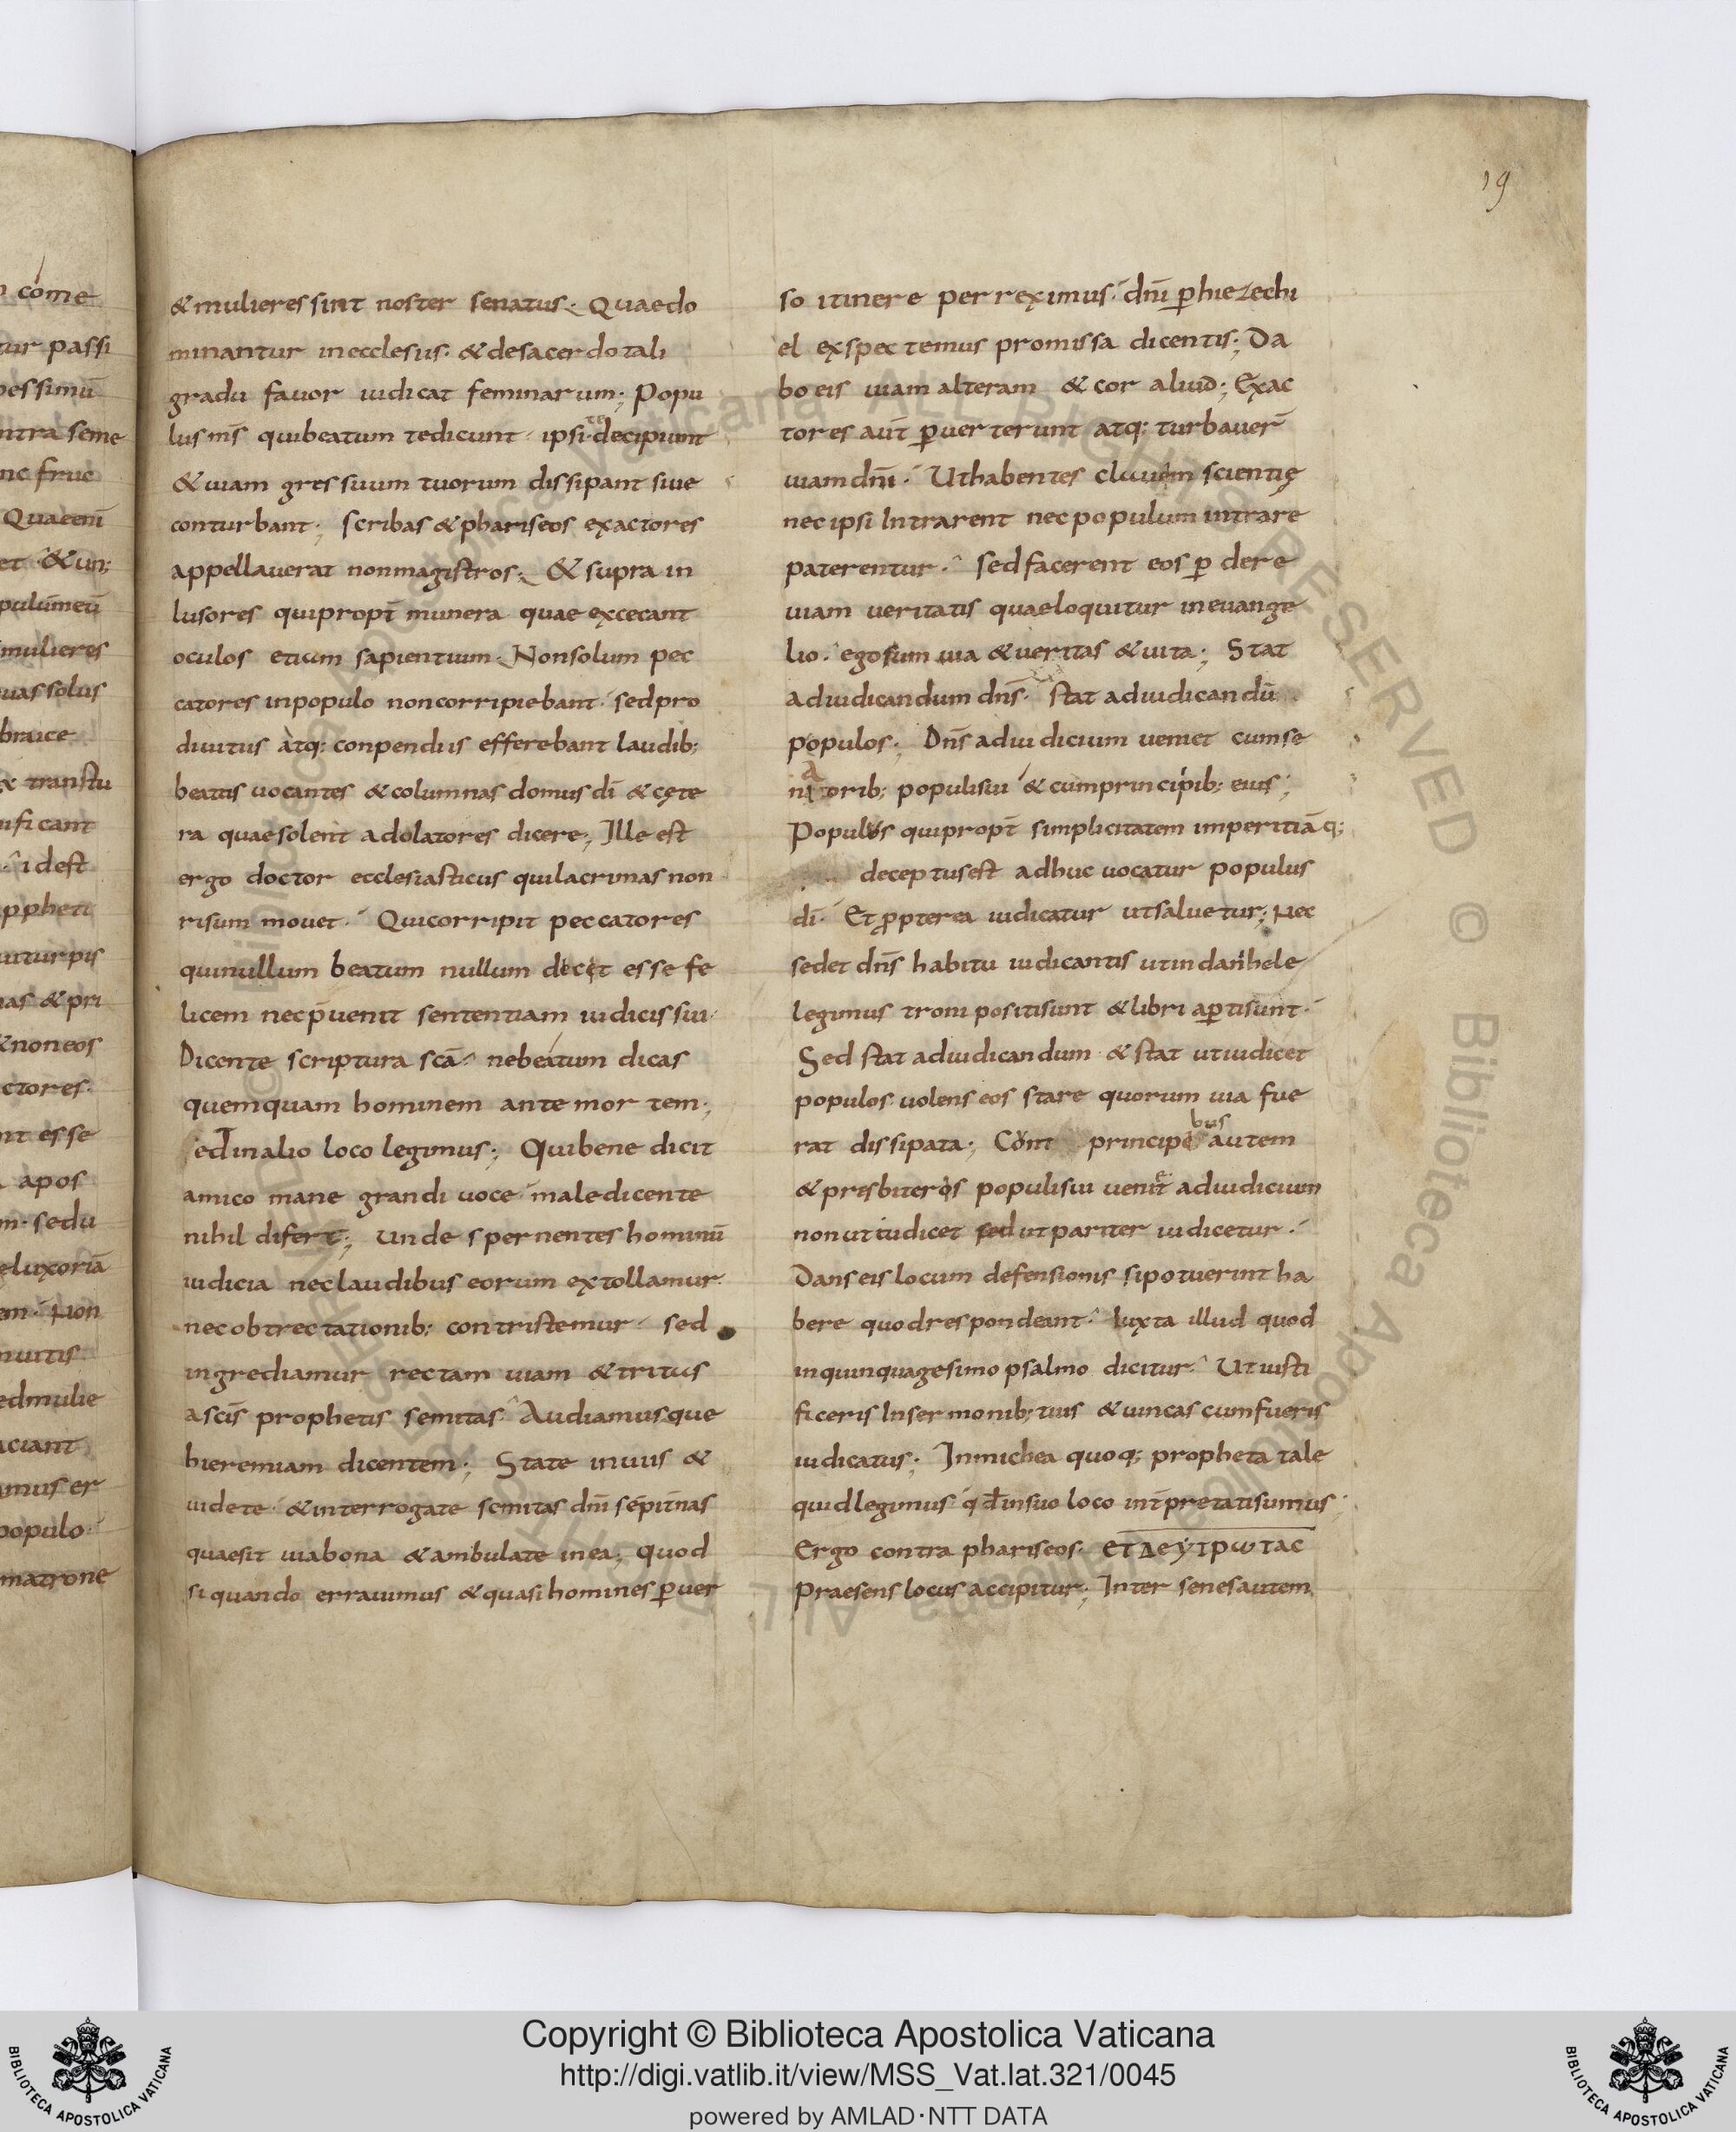 19
& mulieres sint noster senatus. Quaedo
minantur inecclesiis. & desacerdotali
gradu favor iudicat feminarum; Popu
lus ms̄ quibeatum tedicunt. ipsi te decipiunt
& uiam gressuum tuorum dissipant siue
conturbant; scribas & phariseos exactores
appellauerat nonmagistros; & supra in
lusores quipropt̄ munera quae excecant
oculos etiam sapientium. Nonsolum pec
catores inpopulo noncorripiebant. sedpro
diuitiis atq: conpendiis efferebant laudib;
beatis uocantes & columnas domus dī & cęte
ra quaesolent adolatores dicere; Ille est
ergo doctor ecclesiasticus quilacrimas non
risum mouet. Quicorripit peccatores
quinullum beatum nullum dicit esse fe
licem nec p̄uenit sententiam iudicis sui.
Dicente scriptura scā. nebeatum dicas
quemquam hominem ante mortem;
Ted inalio loco legimus; Quibene dicit
amico mane grandi uoce maledicente
nihil difert; unde spernentes hominū
iudicia neclaudibus eorum extollamur.
necobtrectationib; contristemur. sed
ingrediamur rectam uiam & tritus
ascīs prophetis semitas. Audiamusque
hieremiam dicentem; State inuiis &
uidete. & interrogate semitas dnī sēpit̄nas
quaesit uiabona & ambulate inea; quod
siquando errauimus & quasi homines ꝑuer
so itinere perreximus. dnī ꝑhiezechi
el exspectemus promissa dicentis; Da
bo eis uiam alteram & cor aliud; Exac
tores aūt ꝑuerterunt atq: turbauer̄
uiam dnī. Ut habentes clauem scientię
nec ipsi Intrarent nec populum intrare
paterentur. sed facerent eos ꝑdere
uiam ueritatis quaeloquitur ineuange
lio. ego sum uia & ueritas & uita; Stat
adiudicandum dns̄. stat adiudicandū
populos; Dns̄ adiudicium ueniet cumse
niatorib; populisui & cumprincipib; eius;
Populus quipropt̄ simplicitatem imperitiāq;
deceptusest adhuc uocatur populus
dī. Et ꝓpterea iudicatur utsaluetur; Nec
sedet dns̄ habitu iudicantis utindanihele
legimus troni positisunt & libri aꝑtisunt.
Sed stat adiudicandum & stat utiudicet
populos uolens eos stare quorum uia fue
rat dissipata; Com principebus autem
& presbiteros populisui uenit adiudicium
non ut iudicet sed ut pariter iudicetur.
Dans eis locum defensionis sipotuerint ha
bere quodrespondeant. Iuxta illud quod
inquinquagesimo psalmo dicitur. Ut iusti
ficeris Insermonib; tuis & uincas cumfueris
iudicatus; Inmichea quoq; propheta tale
quidlegimus qđ insuo loco int̄pretatisumus;
Ergo contra phariseos. ετΔεyτρωτας
Praesens locus accipitur; Inter senesautem
Copyright © Biblioteca Apostolica Vaticana
http://digi.vatlib.it/view/MSS_Vat.lat.321/0045
powered by AMLAD·NTT DATA